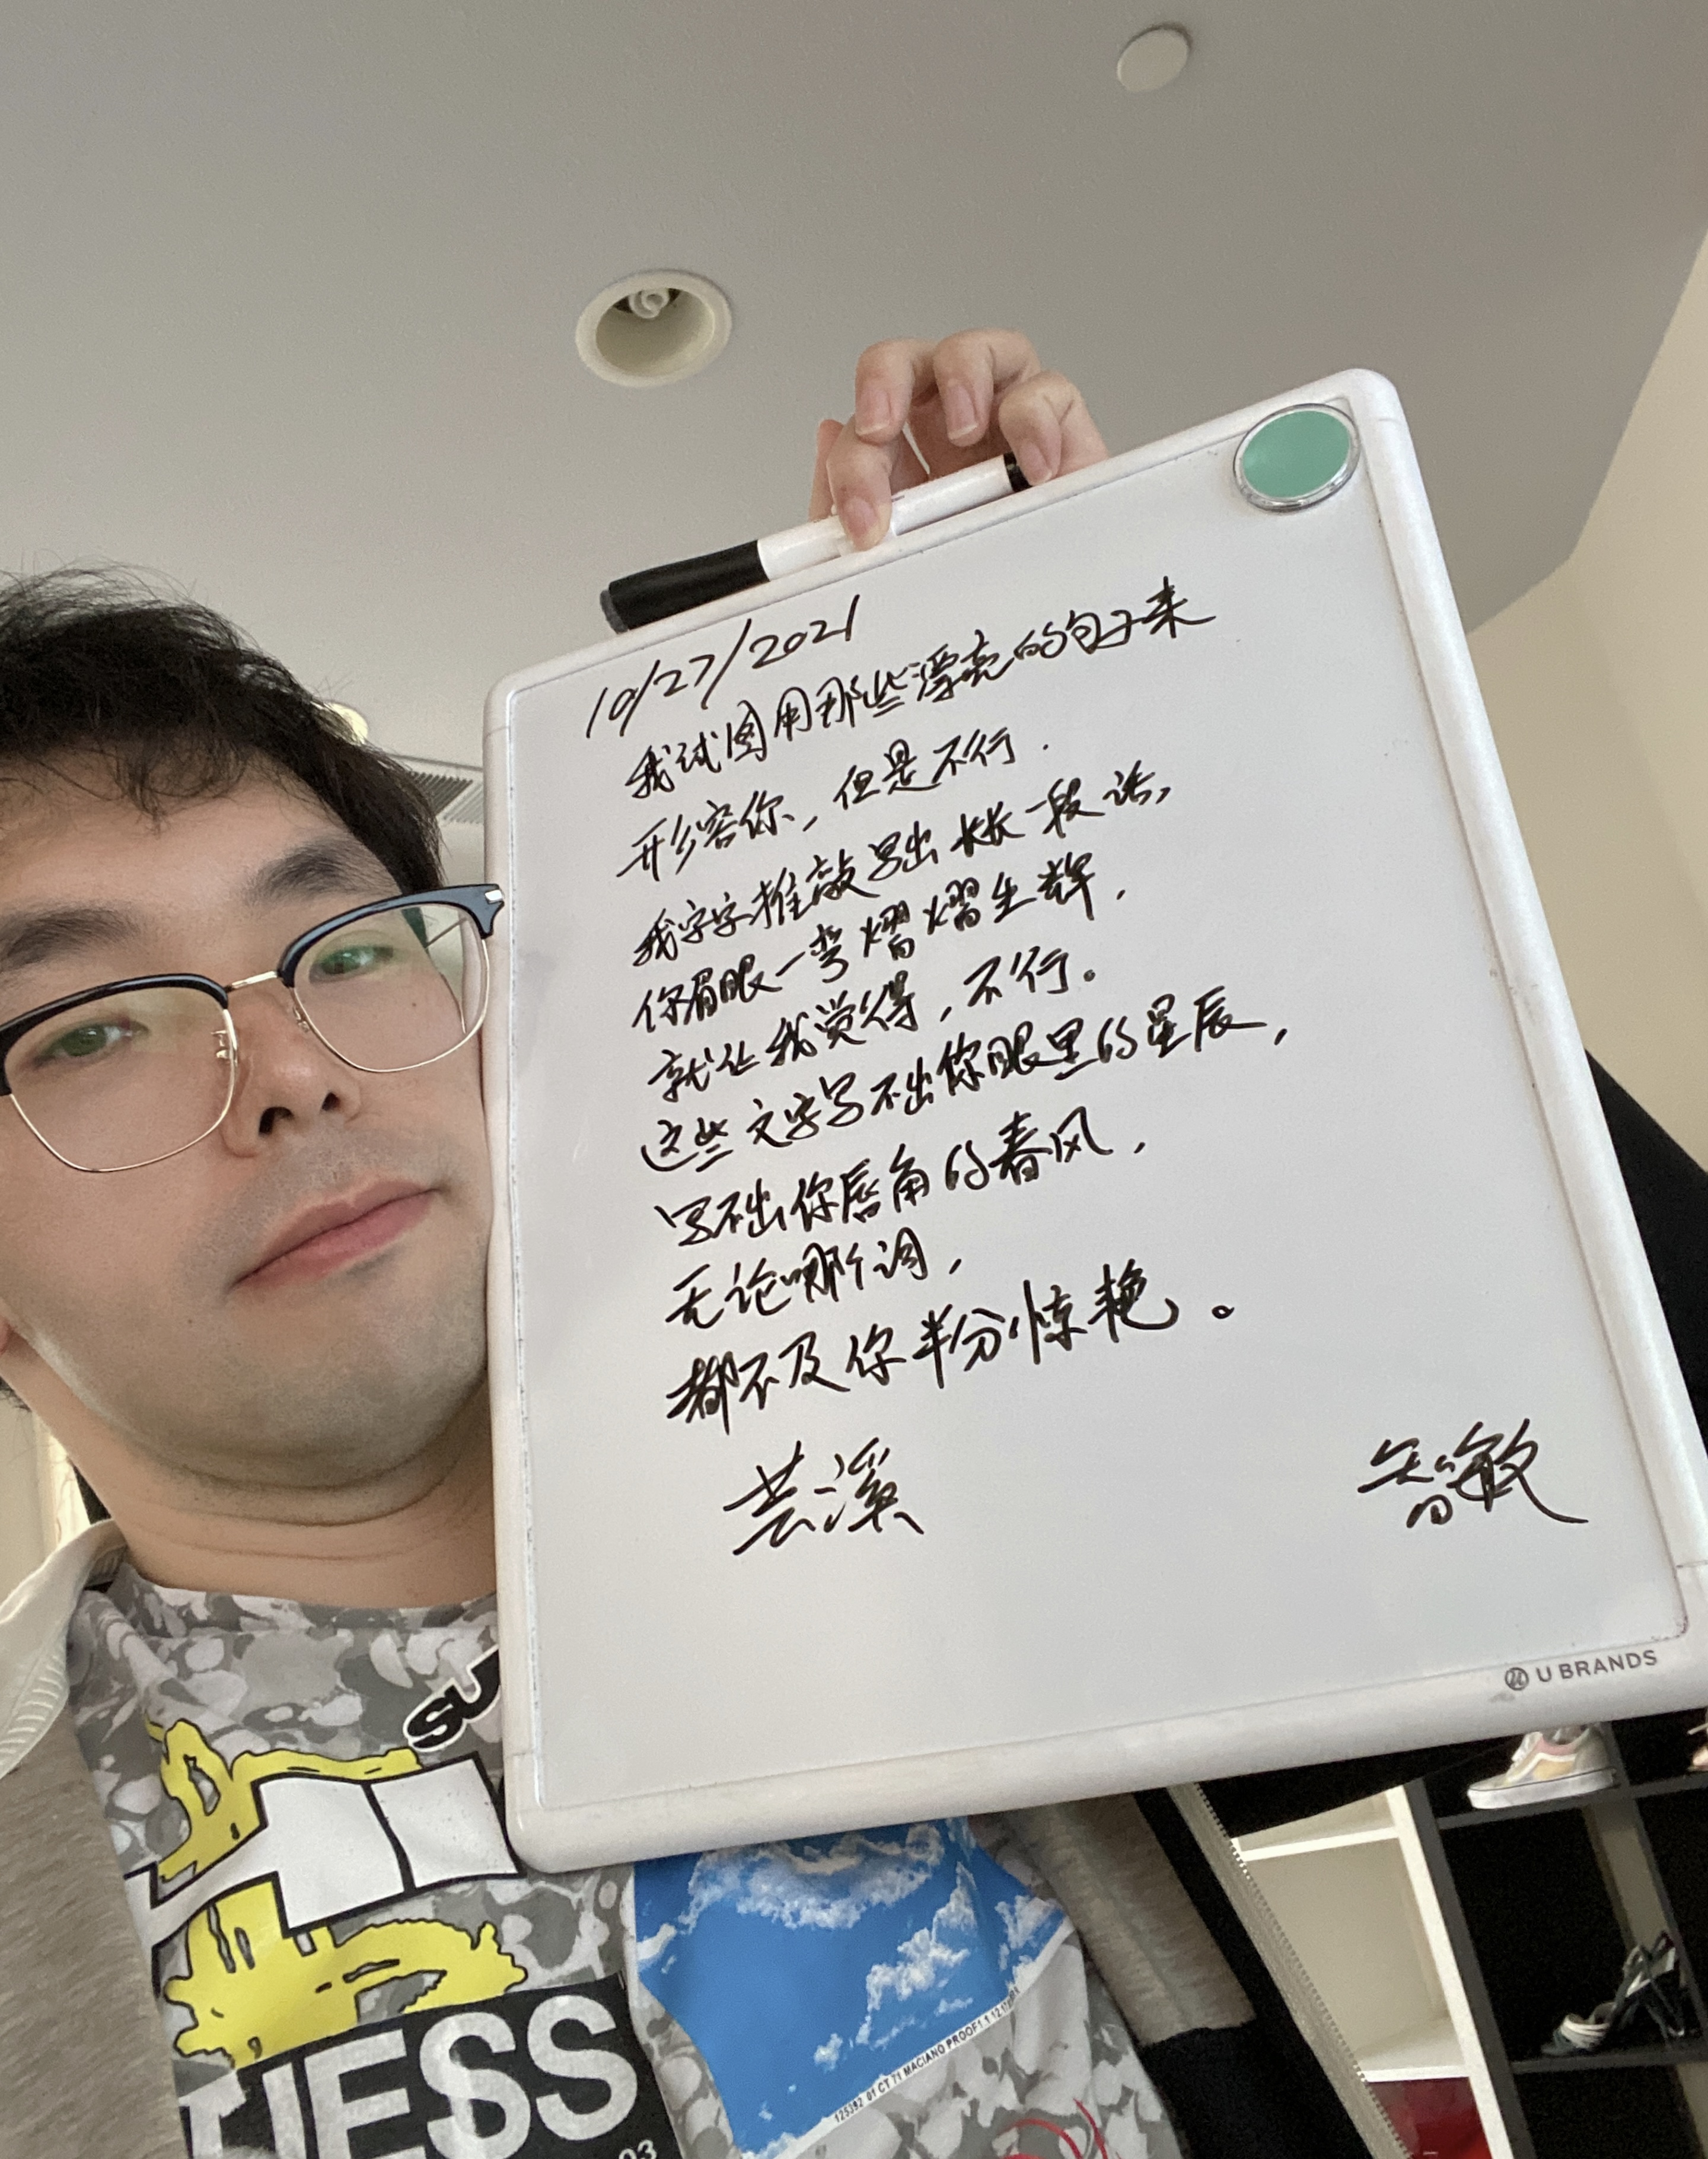 10/27/2021
我试图用那些漂亮的句子来
形容你，但是不行.
我字字推敲写出长长一段话,
你眉眼一弯熠熠生辉,
就让我觉得,不行。
这些文字写不出你眼里的星辰,
写不出你唇角的春风,
无论哪个词,
都不及你半分惊艳。
芸溪
智敏
U BRANDS
SU
JESS
03
125392 01 CT 71 MACIANO PROOF1.1